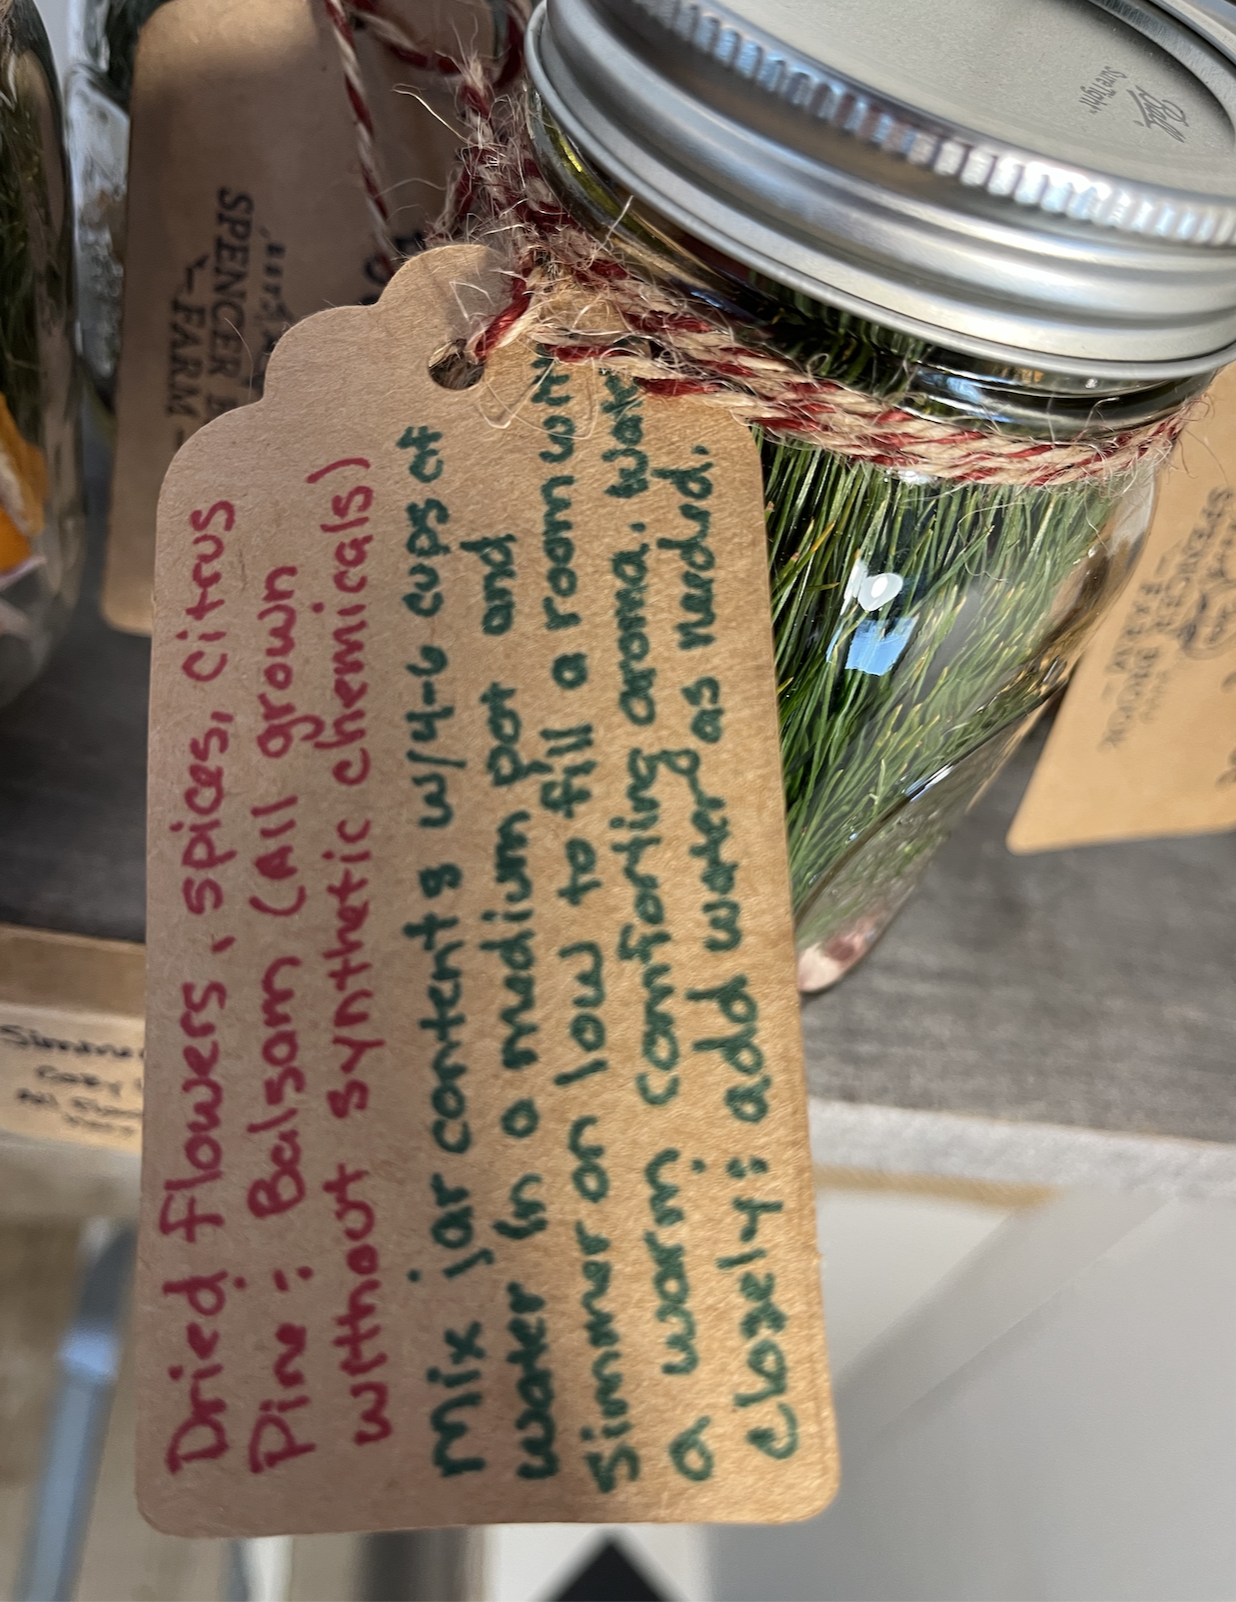 Dried flowers, spices, citrus
Pine; Balsam (All grown
without synthetic chemicals)
Mix jar contents w/4-6 cups of
water in a medium pot and
Simmer on low to fill a room with
a warm comforting aroma. Watch
closely; add water as needed.
SPENCER
FARM
Ball
Sure Tight
SPENCER BROOK
FARM